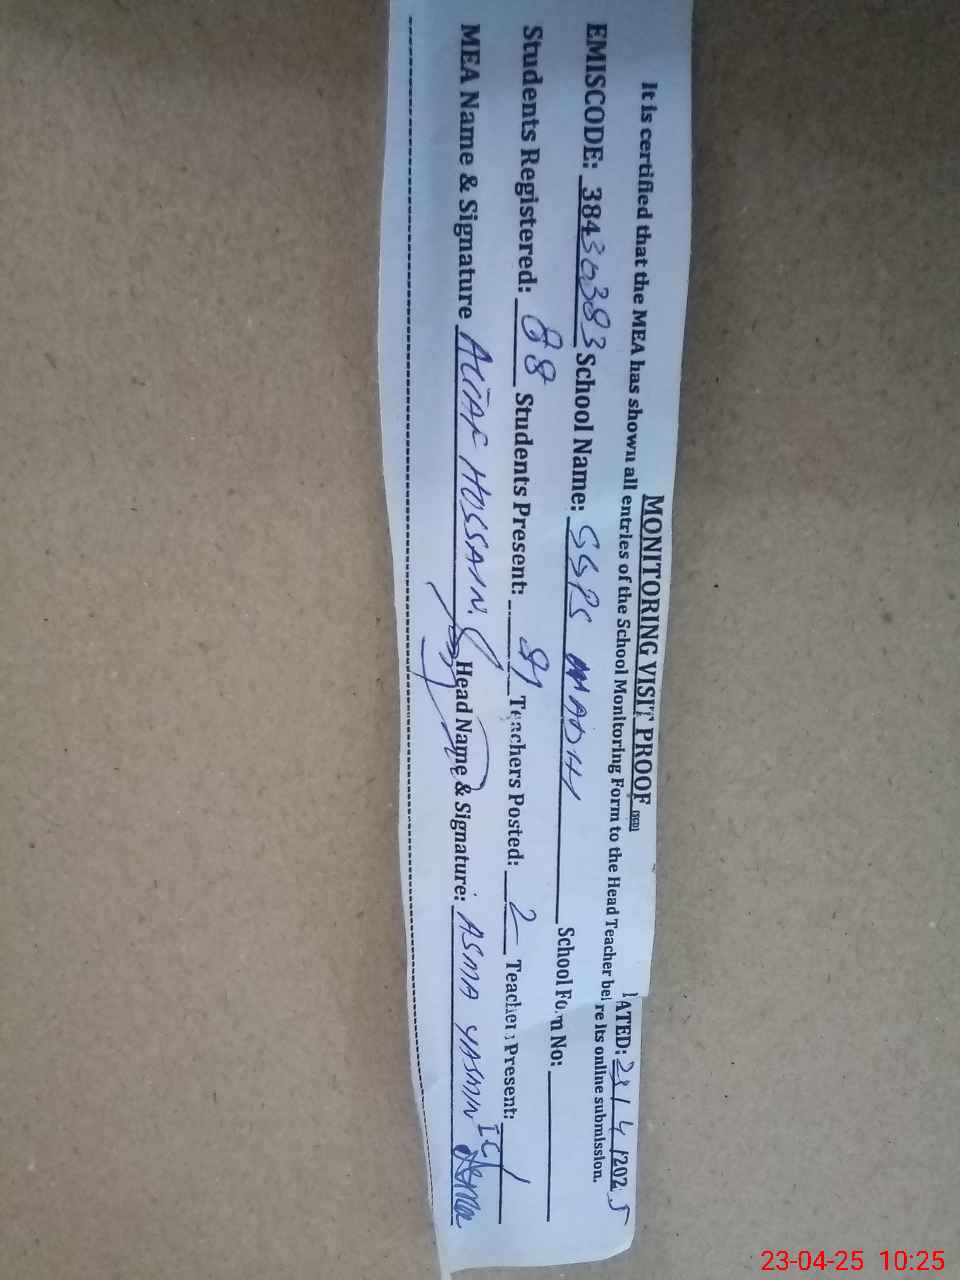 MONITORING VISIT PROOF
DATED: 23/4/2025
It is certified that the MEA has shown all entries of the School Monitoring Form to the Head Teacher before its online submission.
EMISCODE: 38430383 School Name: GGPS MADHI School Form No:
Students Registered: 88 Students Present: 81 Teachers Posted: 2 Teachers Present:
MEA Name & Signature ALTAF HOSSAIN Head Name & Signature: ASMA YASMIN
23-04-25 10:25